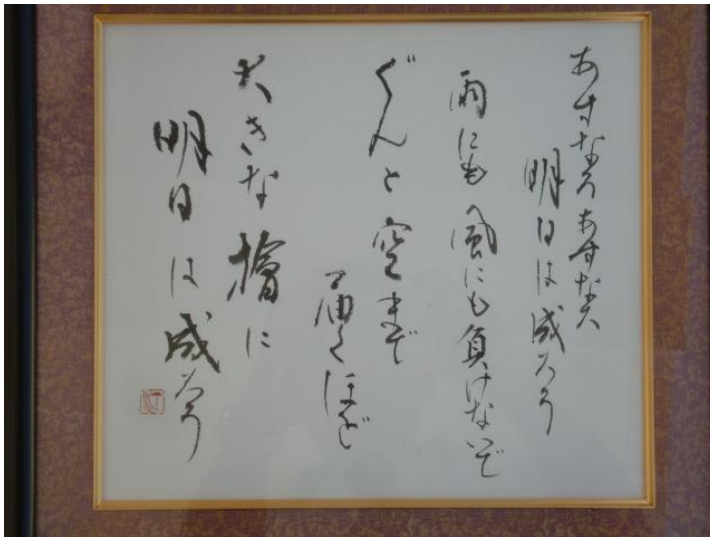 あすなろあすなろ
明日は成ろう
雨にも風にも負けないで
ぐんと空まで
届くほど
大きな檜に
明日は成ろう